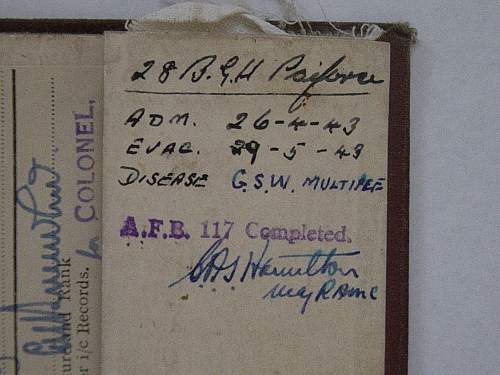 28 B.G.H Paiforce
ADM. 26-4-43
EVAC. 29-5-43
DISEASE G.S.W. MULTIPLE
A.F.B. 117 Completed.
Hamilton
Maj RAMC
COLONEL,
for
ure and Rank
er i/c Records.